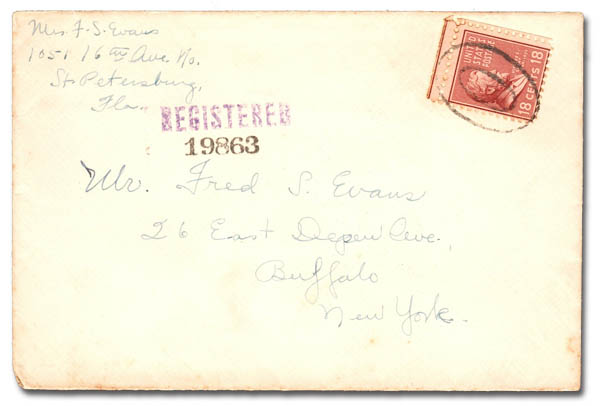 Mrs. F. S. Evans
1051 16th Ave. No.
St. Petersburg,
Fla.
UNITED
STATES
POSTAGE
18 CENTS 18
REGISTERED
19863
Mr. Fred S. Evans
26 East Ave.,
Buffalo
New York.